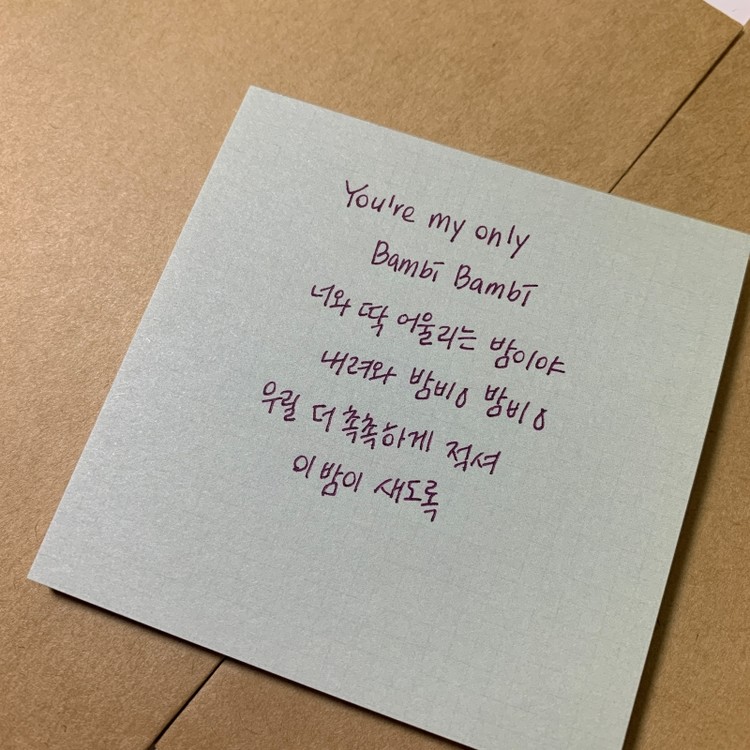 You're my only
Bambi Bambi
너와 딱 어울리는 밤이야
내려와 밤비ㅇ 밤비ㅇ
우릴 더 촉촉하게 적셔
이 밤이 새도록